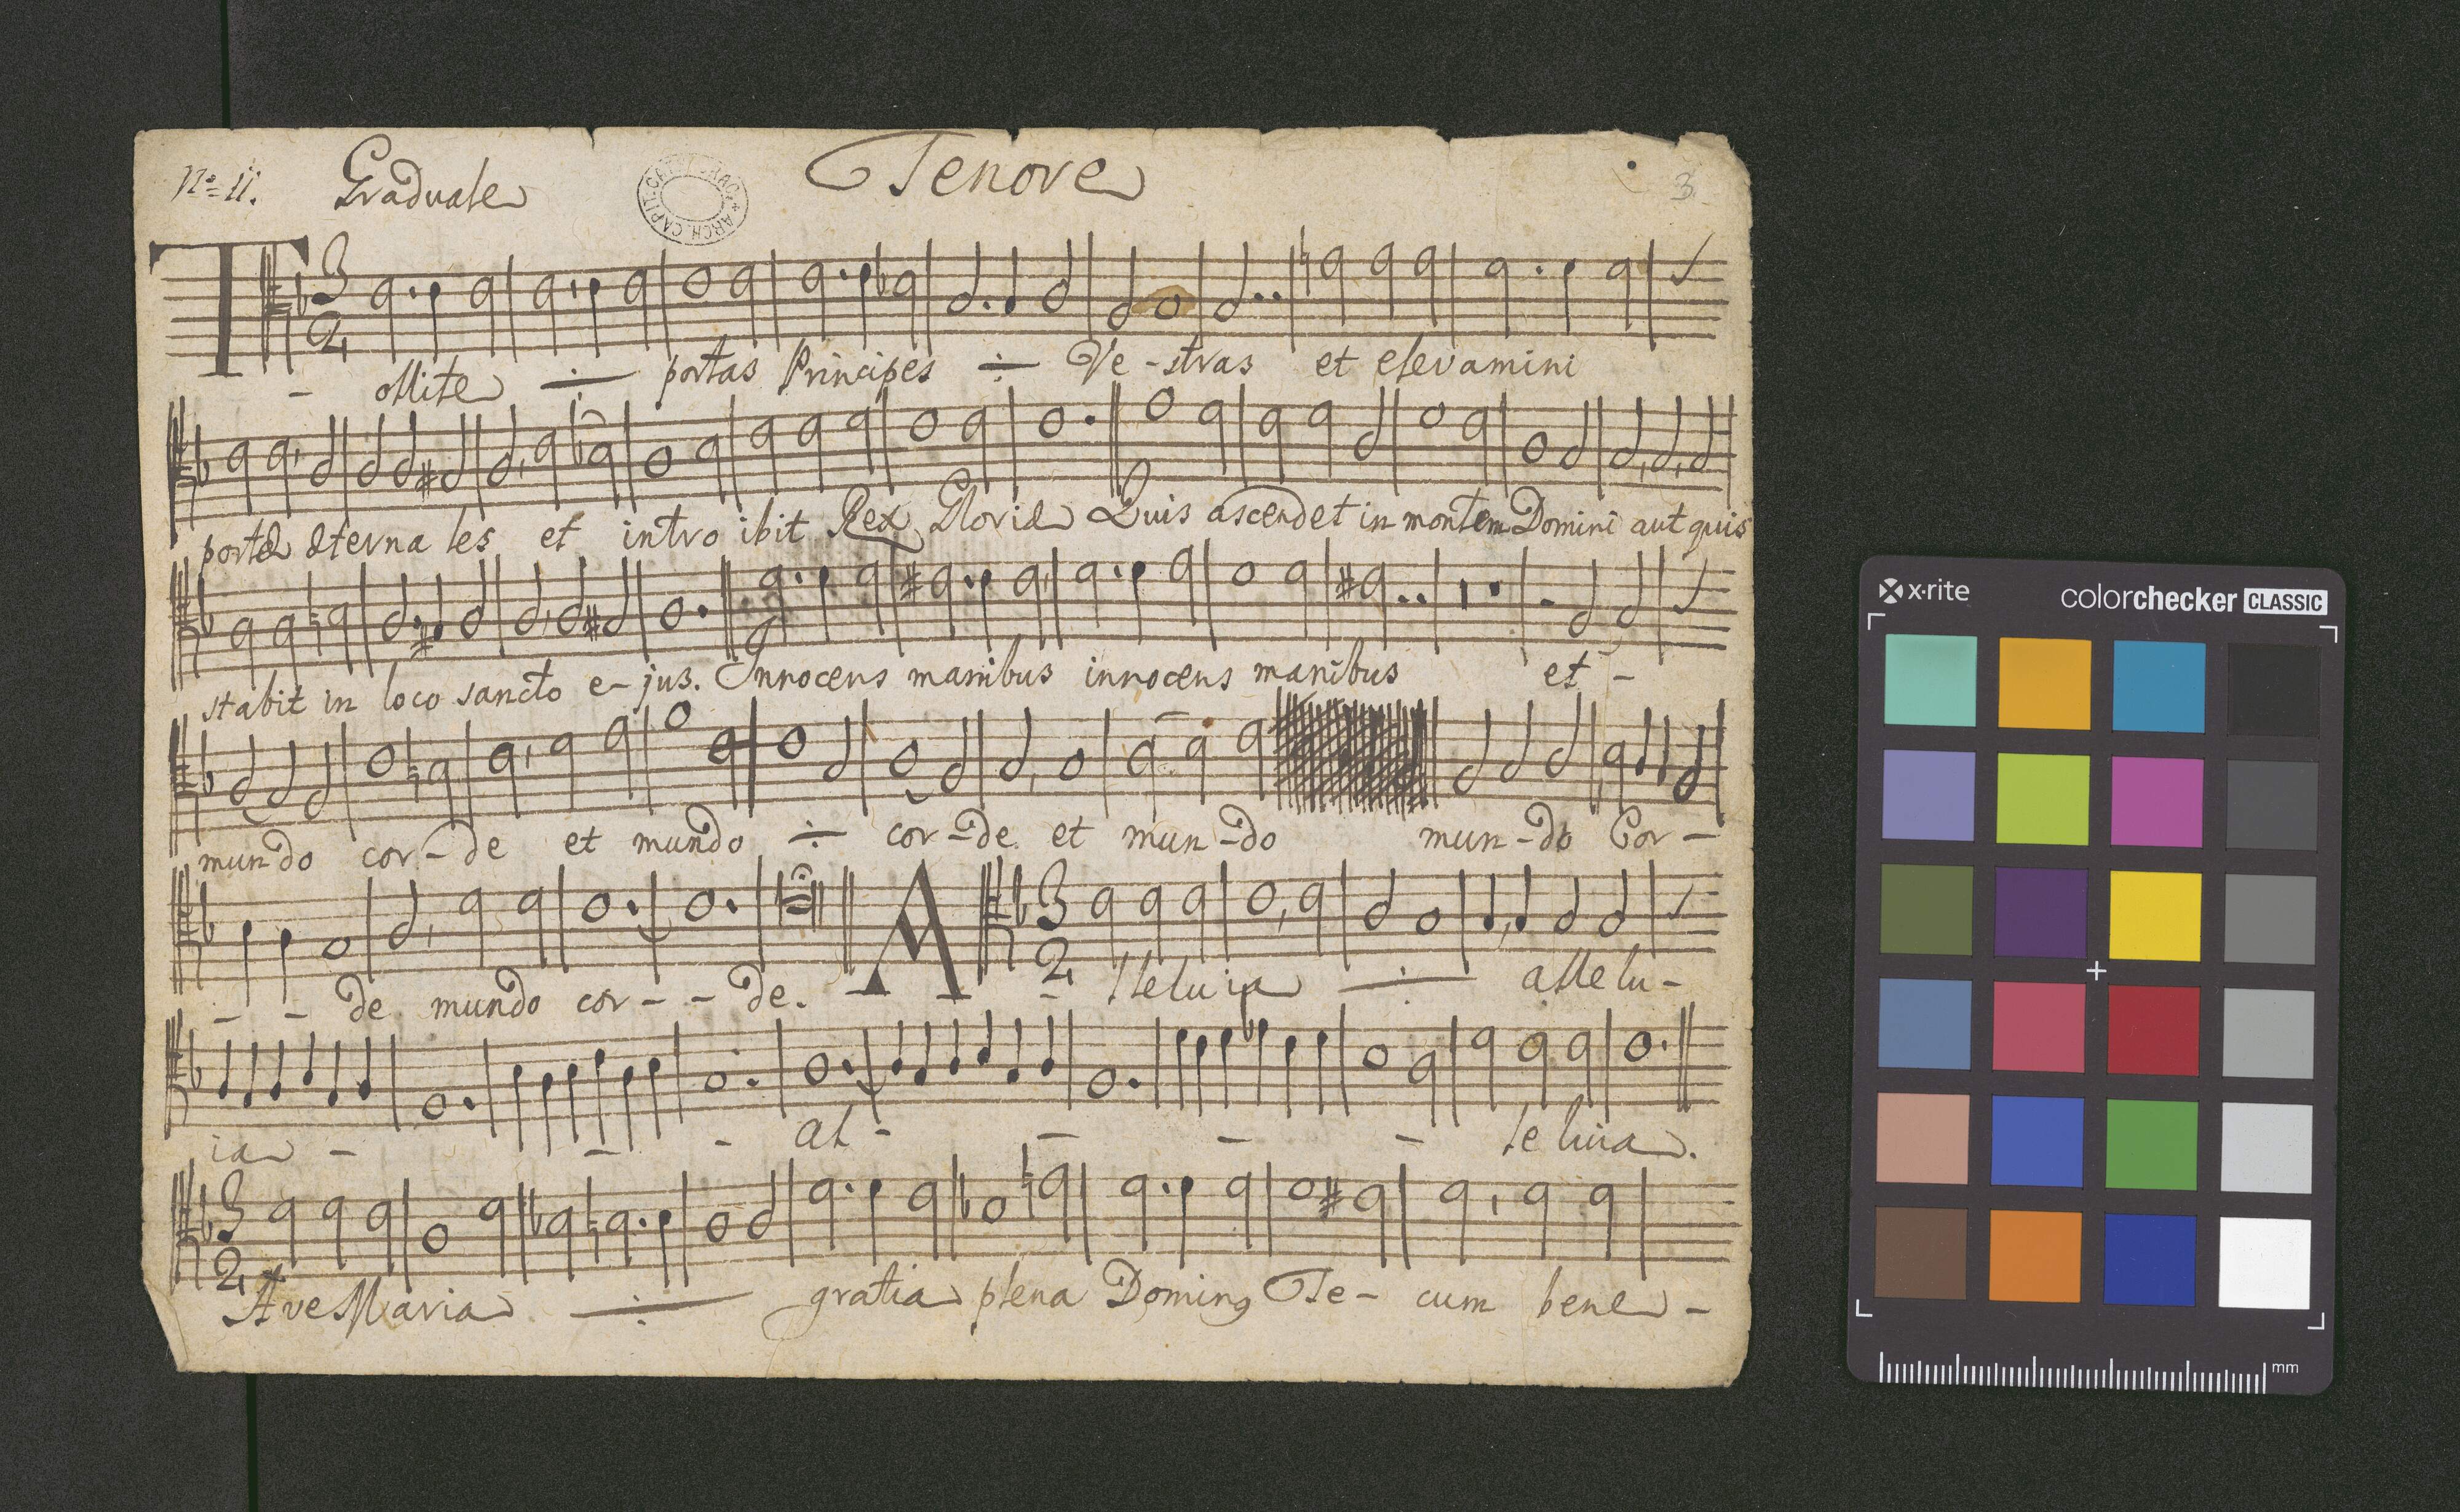 No= ii. Graduale Tenore 3.
ARCH. CAPIT.
3 2
Tollite ÷ portas Principes ÷ Ve-stras et elevamini
portæ æterna les et intro ibit Rex Gloriæ Quis ascendet in montem Domini aut quis
stabit in loco sancto e-jus. Innocens manibus innocens manibus et -
mundo cor-de et mundo ÷ cor-de et mun-do mun-do Cor-
- - de mundo cor- - de. A 3 2 - - - lleluia ÷ allelu-
ia - - - al- - - - leluia.
3 2
Ave Maria ÷ gratia plena Doming Te- cum bene-
x·rite colorchecker CLASSIC
mm